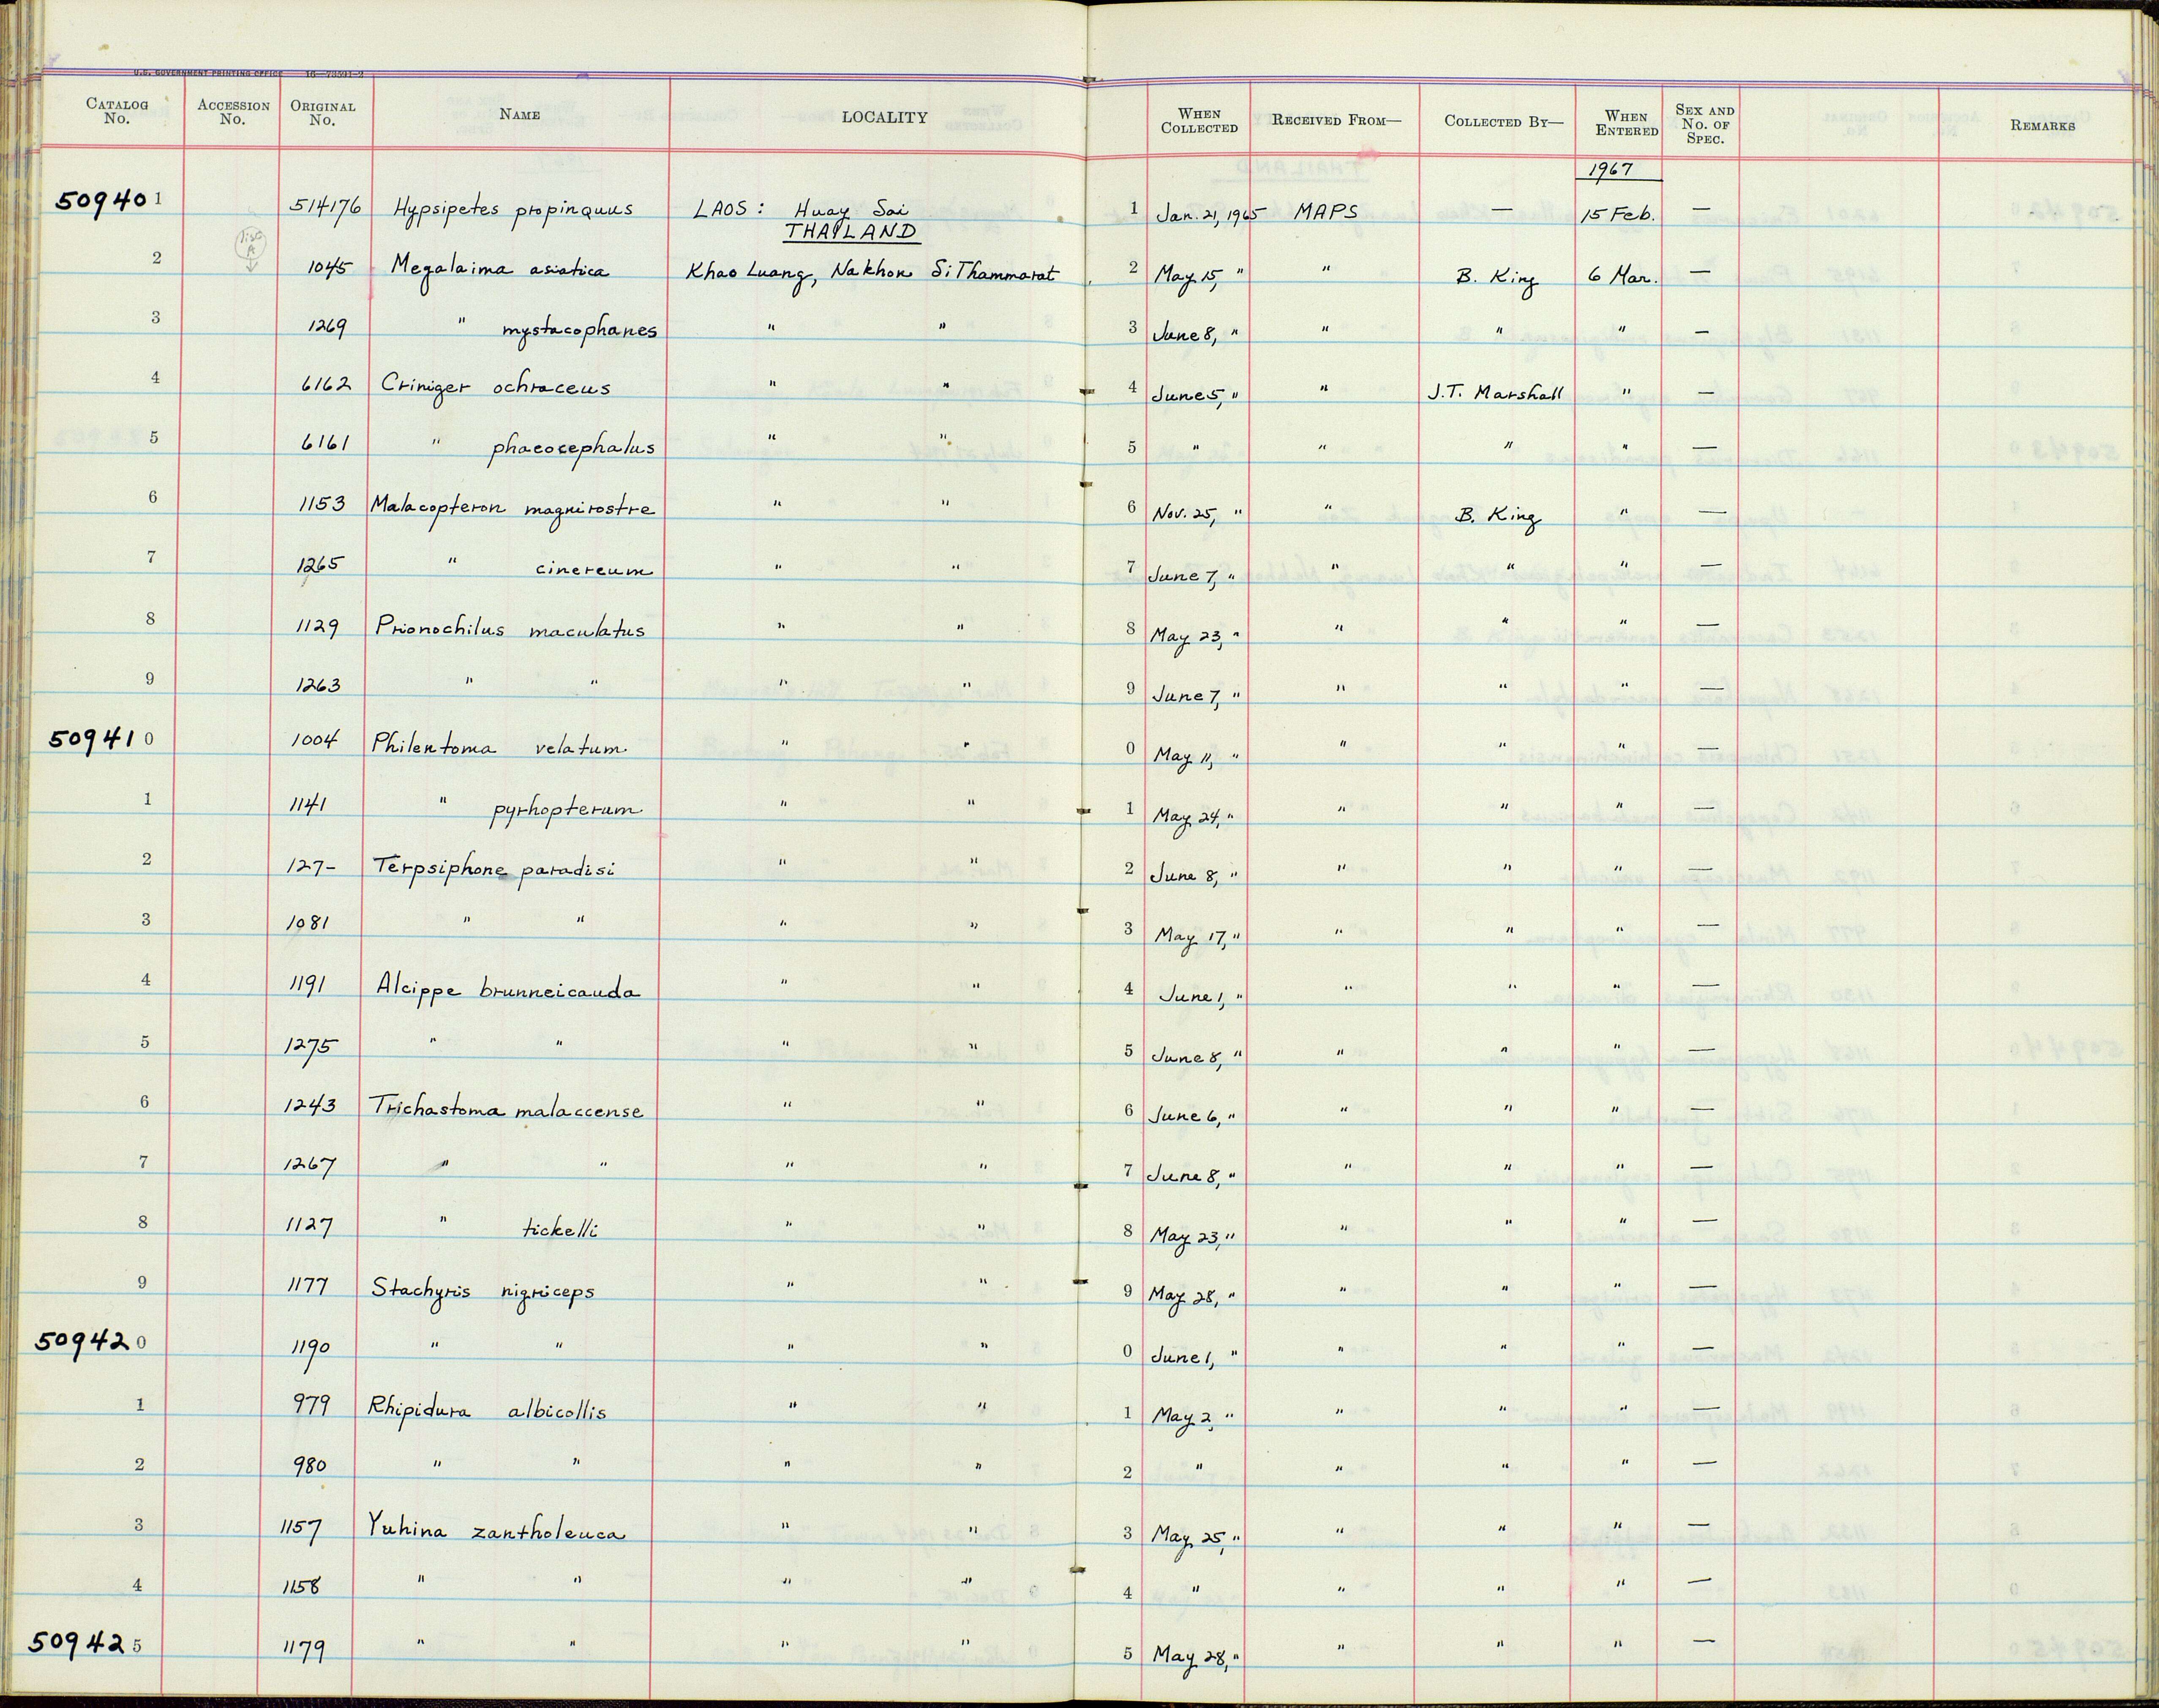 U.S. GOVERNMENT PRINTING OFFICE 16—73591-2
CATALOG No. ACCESSION No. ORIGINAL No. NAME LOCALITY WHEN COLLECTED RECEIVED FROM— COLLECTED BY— WHEN ENTERED SEX AND No. OF SPEC. REMARKS
1967
509401 514176 Hypsipetes propinquus LAOS: Huay Sai 1 Jan. 21, 1965 MAPS — 15 Feb. —
THAILAND
2 1045 Megalaima asiatica Khao Luang, Nakhon Si Thammarat 2 May 15, " " B. King 6 Mar. —
3 1269 " mystacophanes " " 3 June 8, " " " " —
4 6162 Criniger ochraceus " " 4 June 5, " " J.T. Marshall " —
5 6161 " phaeocephalus " " 5 " " " " —
6 1153 Malacopteron magnirostre " " 6 Nov. 25, " " B. King " —
7 1265 " cinereum " " 7 June 7, " " " " —
8 1129 Prionochilus maculatus " " 8 May 23, " " " " —
9 1263 " " " " 9 June 7, " " " " —
509410 1004 Philentoma velatum " " 0 May 11, " " " " —
1 1141 " pyrhopterum " " 1 May 24, " " " " —
2 127- Terpsiphone paradisi " " 2 June 8, " " " " —
3 1081 " " " " 3 May 17, " " " " —
4 1191 Alcippe brunneicauda " " 4 June 1, " " " " —
5 1275 " " " " 5 June 8, " " " " —
6 1243 Trichastoma malaccense " " 6 June 6, " " " " —
7 1267 " " " " 7 June 8, " " " " —
8 1127 " tickelli " " 8 May 23, " " " " —
9 1177 Stachyris nigriceps " " 9 May 28, " " " " —
509420 1190 " " " " 0 June 1, " " " " —
1 979 Rhipidura albicollis " " 1 May 2, " " " " —
2 980 " " " " 2 " " " " —
3 1157 Yuhina zantholeuca " " 3 May 25, " " " " —
4 1158 " " " " 4 " " " " —
509425 1179 " " " " 5 May 28, " " " " —